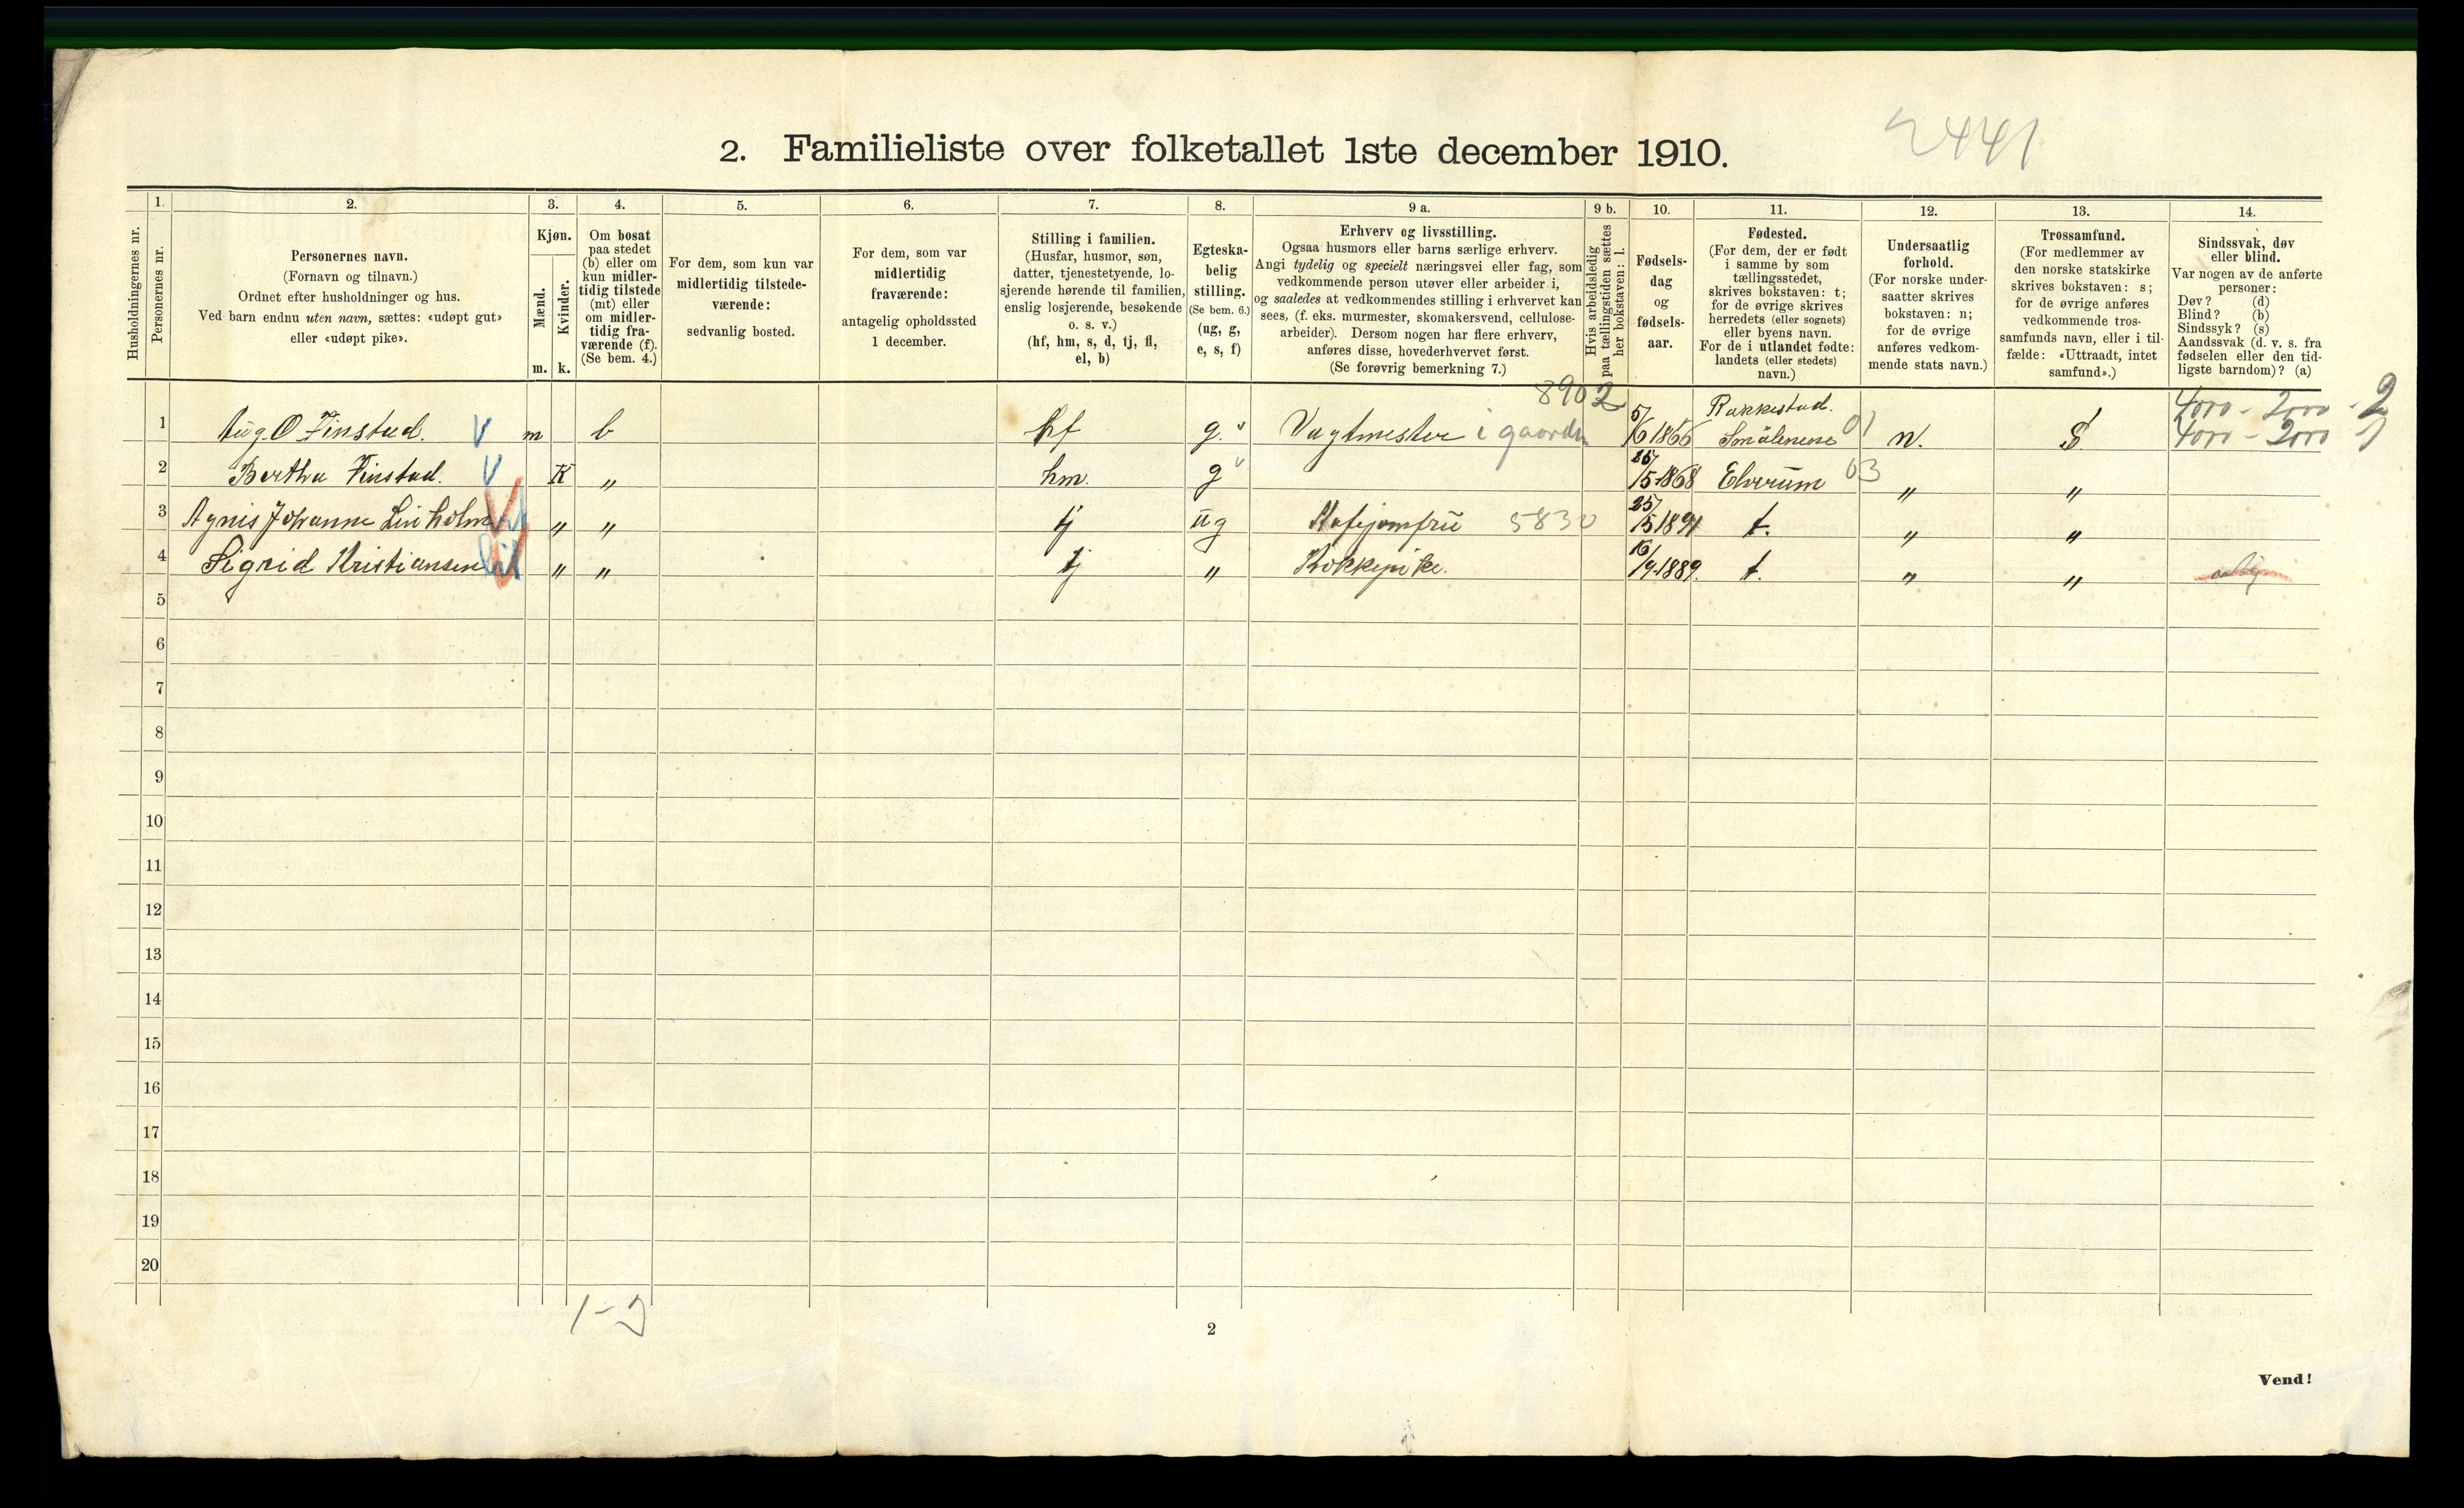 2441
2. Familieliste over folketallet 1ste december 1910.
Husholdningernes nr.
1.
Personernes nr.
2.
Personernes navn.
(Fornavn og tilnavn.)
Ordnet efter husholdninger og hus.
Ved barn endnu uten navn, sættes: «udøpt gut»
eller «udøpt pike».
3.
Kjøn.
Mænd.
Kvinder.
m. k.
4.
Om bosat
paa stedet
(b) eller om
kun midler-
tidig tilstede
(mt) eller
om midler-
tidig fra-
værende (f).
(Se bem. 4.)
5.
For dem, som kun var
midlertidig tilstede-
værende:
sedvanlig bosted.
6.
For dem, som var
midlertidig
fraværende:
antagelig opholdssted
1 december.
7.
Stilling i familien.
(Husfar, husmor, søn,
datter, tjenestetyende, lo-
sjerende hørende til familien,
enslig losjerende, besøkende
o. s. v.)
(hf, hm, s, d, tj, fl,
el, b)
8.
Egteska-
belig
stilling.
(Se bem. 6.)
(ug, g,
e, s, f)
9 a.
Erhverv og livsstilling.
Ogsaa husmors eller barns særlige erhverv.
Angi tydelig og specielt næringsvei eller fag, som
vedkommende person utøver eller arbeider i,
og saaledes at vedkommendes stilling i erhvervet kan
sees, (f. eks. murmester, skomakersvend, cellulose-
arbeider). Dersom nogen har flere erhverv,
anføres disse, hovederhvervet først.
(Se forøvrig bemerkning 7.)
9 b.
Hvis arbeidsledig
paa tællingstiden sættes
her bokstaven: l.
10.
Fødsels-
dag
og
fødsels-
aar.
11.
Fødested.
(For dem, der er født
i samme by som
tællingsstedet,
skrives bokstaven: t;
for de øvrige skrives
herredets (eller sognets)
eller byens navn.
For de i utlandet fødte:
landets (eller stedets)
navn.)
12.
Undersaatlig
forhold.
(For norske under-
saatter skrives
bokstaven: n;
for de øvrige
anføres vedkom-
mende stats navn.)
13.
Trossamfund.
(For medlemmer av
den norske statskirke
skrives bokstaven: s;
for de øvrige anføres
vedkommende tros-
samfunds navn, eller i til-
fælde: «Uttraadt, intet
samfund».)
14.
Sindssvak, døv
eller blind.
Var nogen av de anførte
personer:
Døv? (d)
Blind? (b)
Sindssyk? (s)
Aandssvak (d. v. s. fra
fødselen eller den tid-
ligste barndom)? (a)
8902 Rakkestad. 4000 - 2000 - 2
1 Aug. O Finstad. V m b hf g. Vagtmester i gaarden 5/6 1866 Smålenene 01 n. S. 4000 - 2000 1
2 Bertha Finstad. V K " hm. g 15/5 1868 Elverum 03 " "
3 Agnis Johanne " " tj ug 5830 25/5 1891 t. " "
4 Sigrid Kristiansen " " tj " Kokkepike. 16/9 1889. t. " "
5
6
7
8
9
10
11
12
13
14
15
16
17
18
19
20
2
Vend!